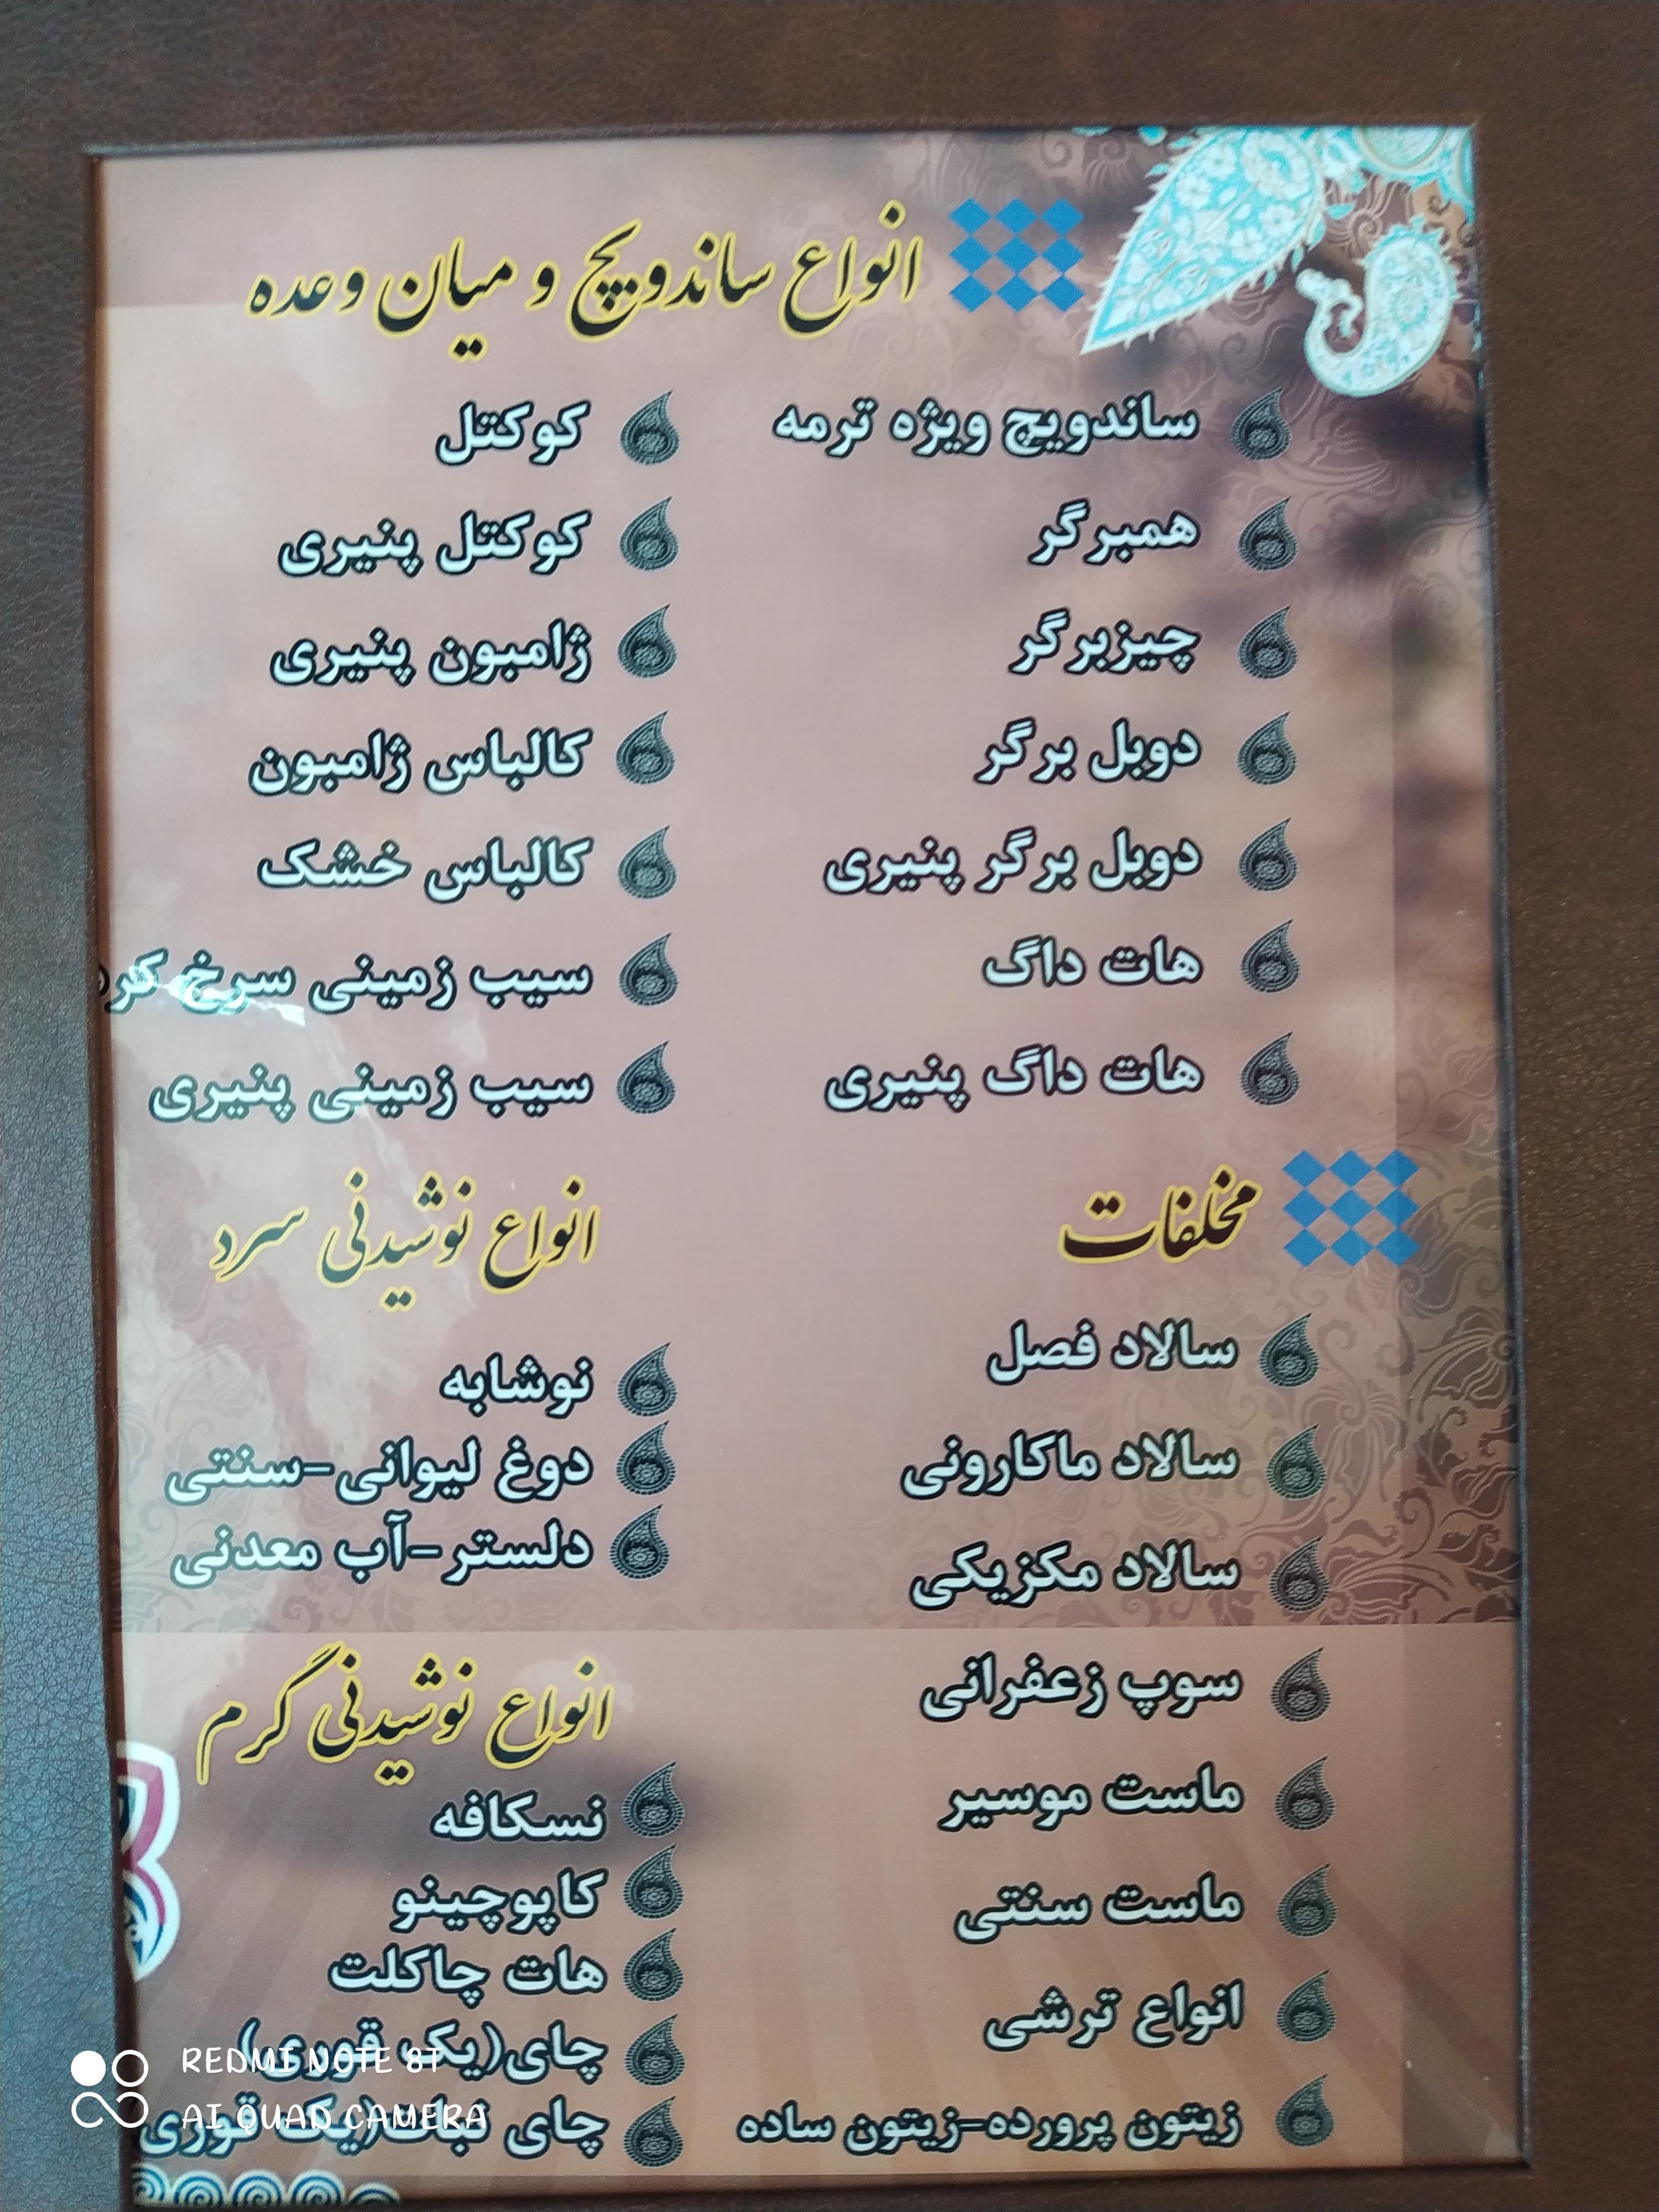 انواع ساندویچ و میان وعده
ساندویچ ویژه ترمه
همبرگر
چیزبرگر
دوبل برگر
دوبل برگر پنیری
هات داگ
هات داگ پنیری
کوکتل
کوکتل پنیری
ژامبون پنیری
کالباس ژامبون
کالباس خشک
سیب زمینی سرخ کرده
سیب زمینی پنیری
مخلفات
سالاد فصل
سالاد ماکارونی
سالاد مکزیکی
سوپ زعفرانی
ماست موسیر
ماست سنتی
انواع ترشی
زیتون پرورده-زیتون ساده
انواع نوشیدنی سرد
نوشابه
دوغ لیوانی-سنتی
دلستر-آب معدنی
انواع نوشیدنی گرم
نسکافه
کاپوچینو
هات چاکلت
چای(یک قوری)
چای نبات(یک قوری
REDMI NOTE 8T
AI QUAD CAMERA